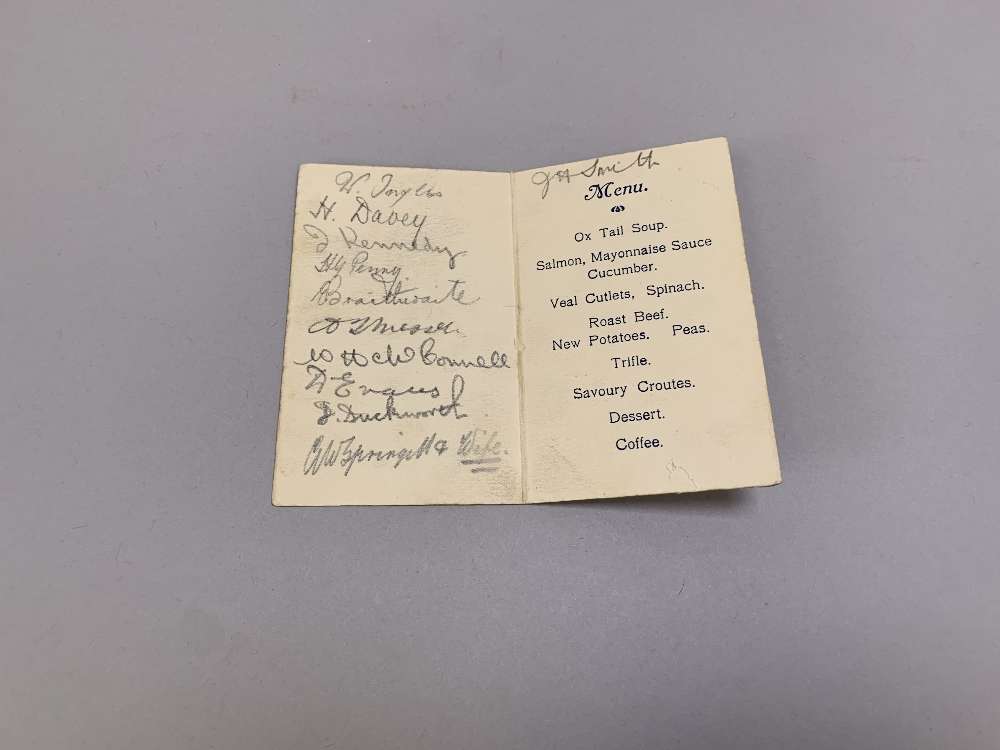 H. Davey
J Kennedy
Hy Penny
Braithwaite
W H McConnell
D Evans
J. Duckworth
& Wife.
J H Smith
Menu.
Ox Tail Soup.
Salmon, Mayonnaise Sauce
Cucumber.
Veal Cutlets, Spinach.
Roast Beef.
New Potatoes. Peas.
Trifle.
Savoury Croutes.
Dessert.
Coffee.